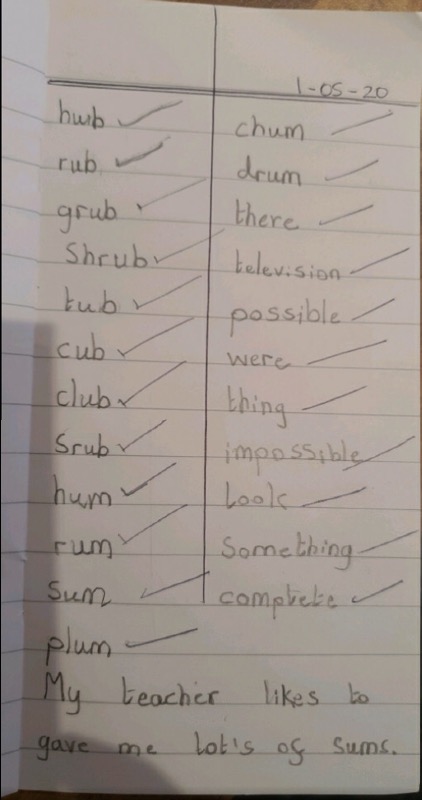 1-05-20
hub
rub
grub
Shrub
tub
cub
club
Srub
hum
rum
Sum
plum
chum
drum
there
television
possible
were
thing
impossible
Look
Something
complete
My teacher likes to
gave me lot's of sums.